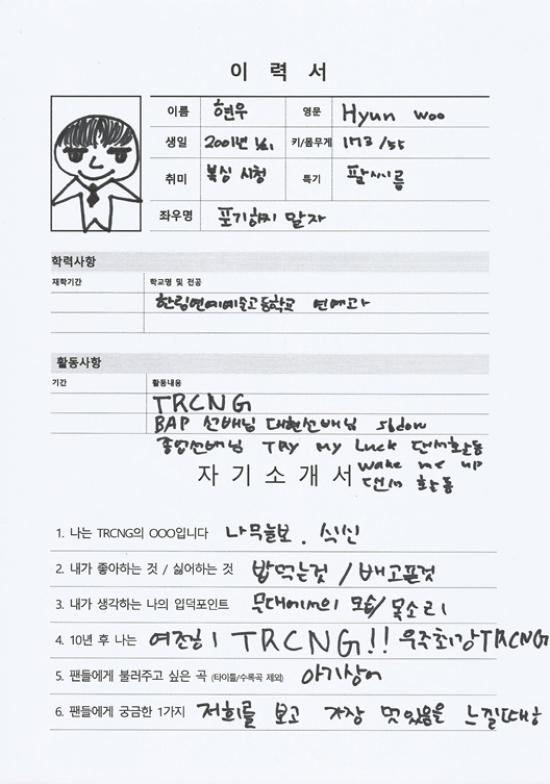 이 력 서
이름 현우 영문 Hyun woo
생일 2001년 1/21 키/몸무게 173 /55
취미 복싱 시청 특기 팔씨름
좌우명 포기하지 말자
학력사항
재학기간 학교명 및 전공
한림연예예술고등학교 연예과
활동사항
기간 활동내용
TRCNG
BAP 선배님 대현선배님 shdow
종업선배님 TRY My Luck 댄서활동
wake me up
댄서 활동
자 기 소 개 서
1. 나는 TRCNG의 OOO입니다 나무늘보. 식신
2. 내가 좋아하는 것 / 싫어하는 것 밥먹는것 / 배고픈것
3. 내가 생각하는 나의 입덕포인트 무대에서의 모습/ 목소리
4. 10년 후 나는 여전히 TRCNG!! 우주최강TRCNG
5. 팬들에게 불러주고 싶은 곡 (타이틀/수록곡 제외) 아기상어
6. 팬들에게 궁금한 1가지 저희를 보고 가장 멋있음을 느낄때랑